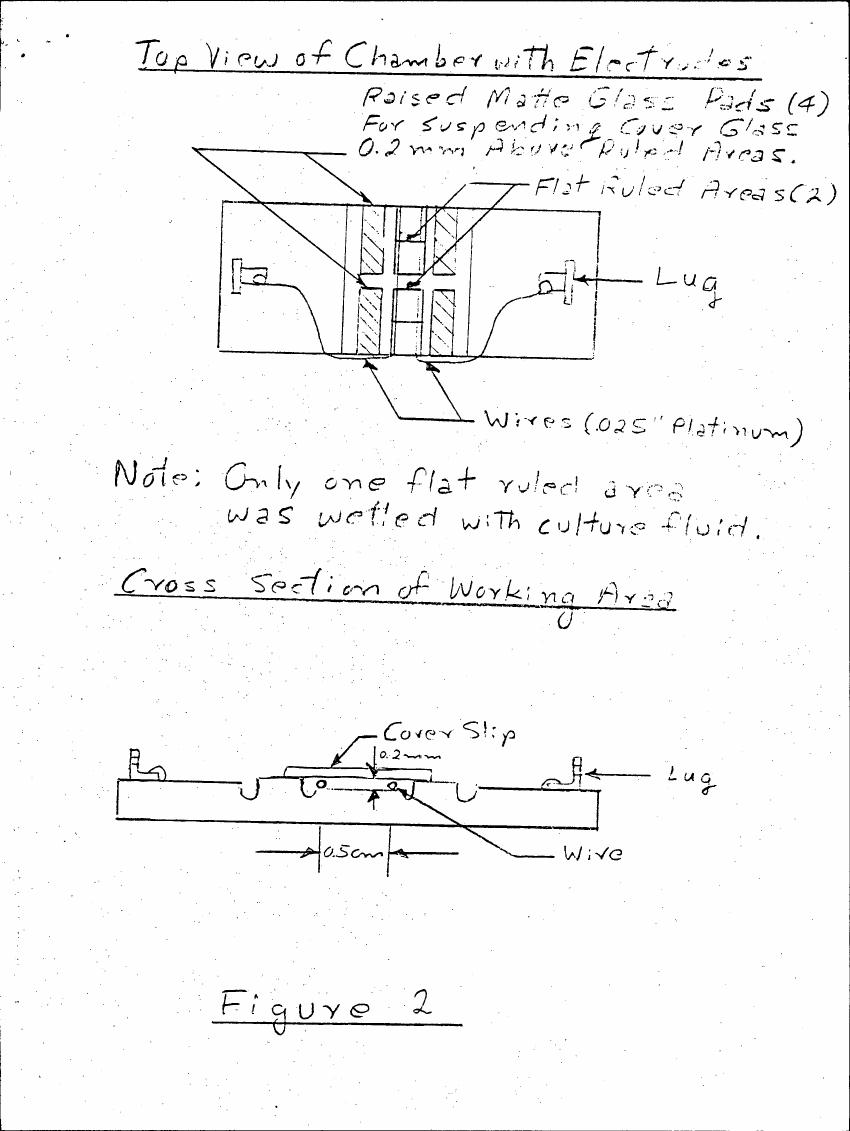 Top View of Chamber with Electrodes
Raised Matte Glass Pads (4)
For Suspending Cover Glass
0.2 mm Above Ruled Areas.
Flat Ruled Areas (2)
Lug
Wires (.025" Platinum)
Note: Only one flat ruled area
was wetted with culture fluid.
Cross Section of Working Area
Cover Slip
0.2mm
Lug
0.5cm
Wire
Figure 2